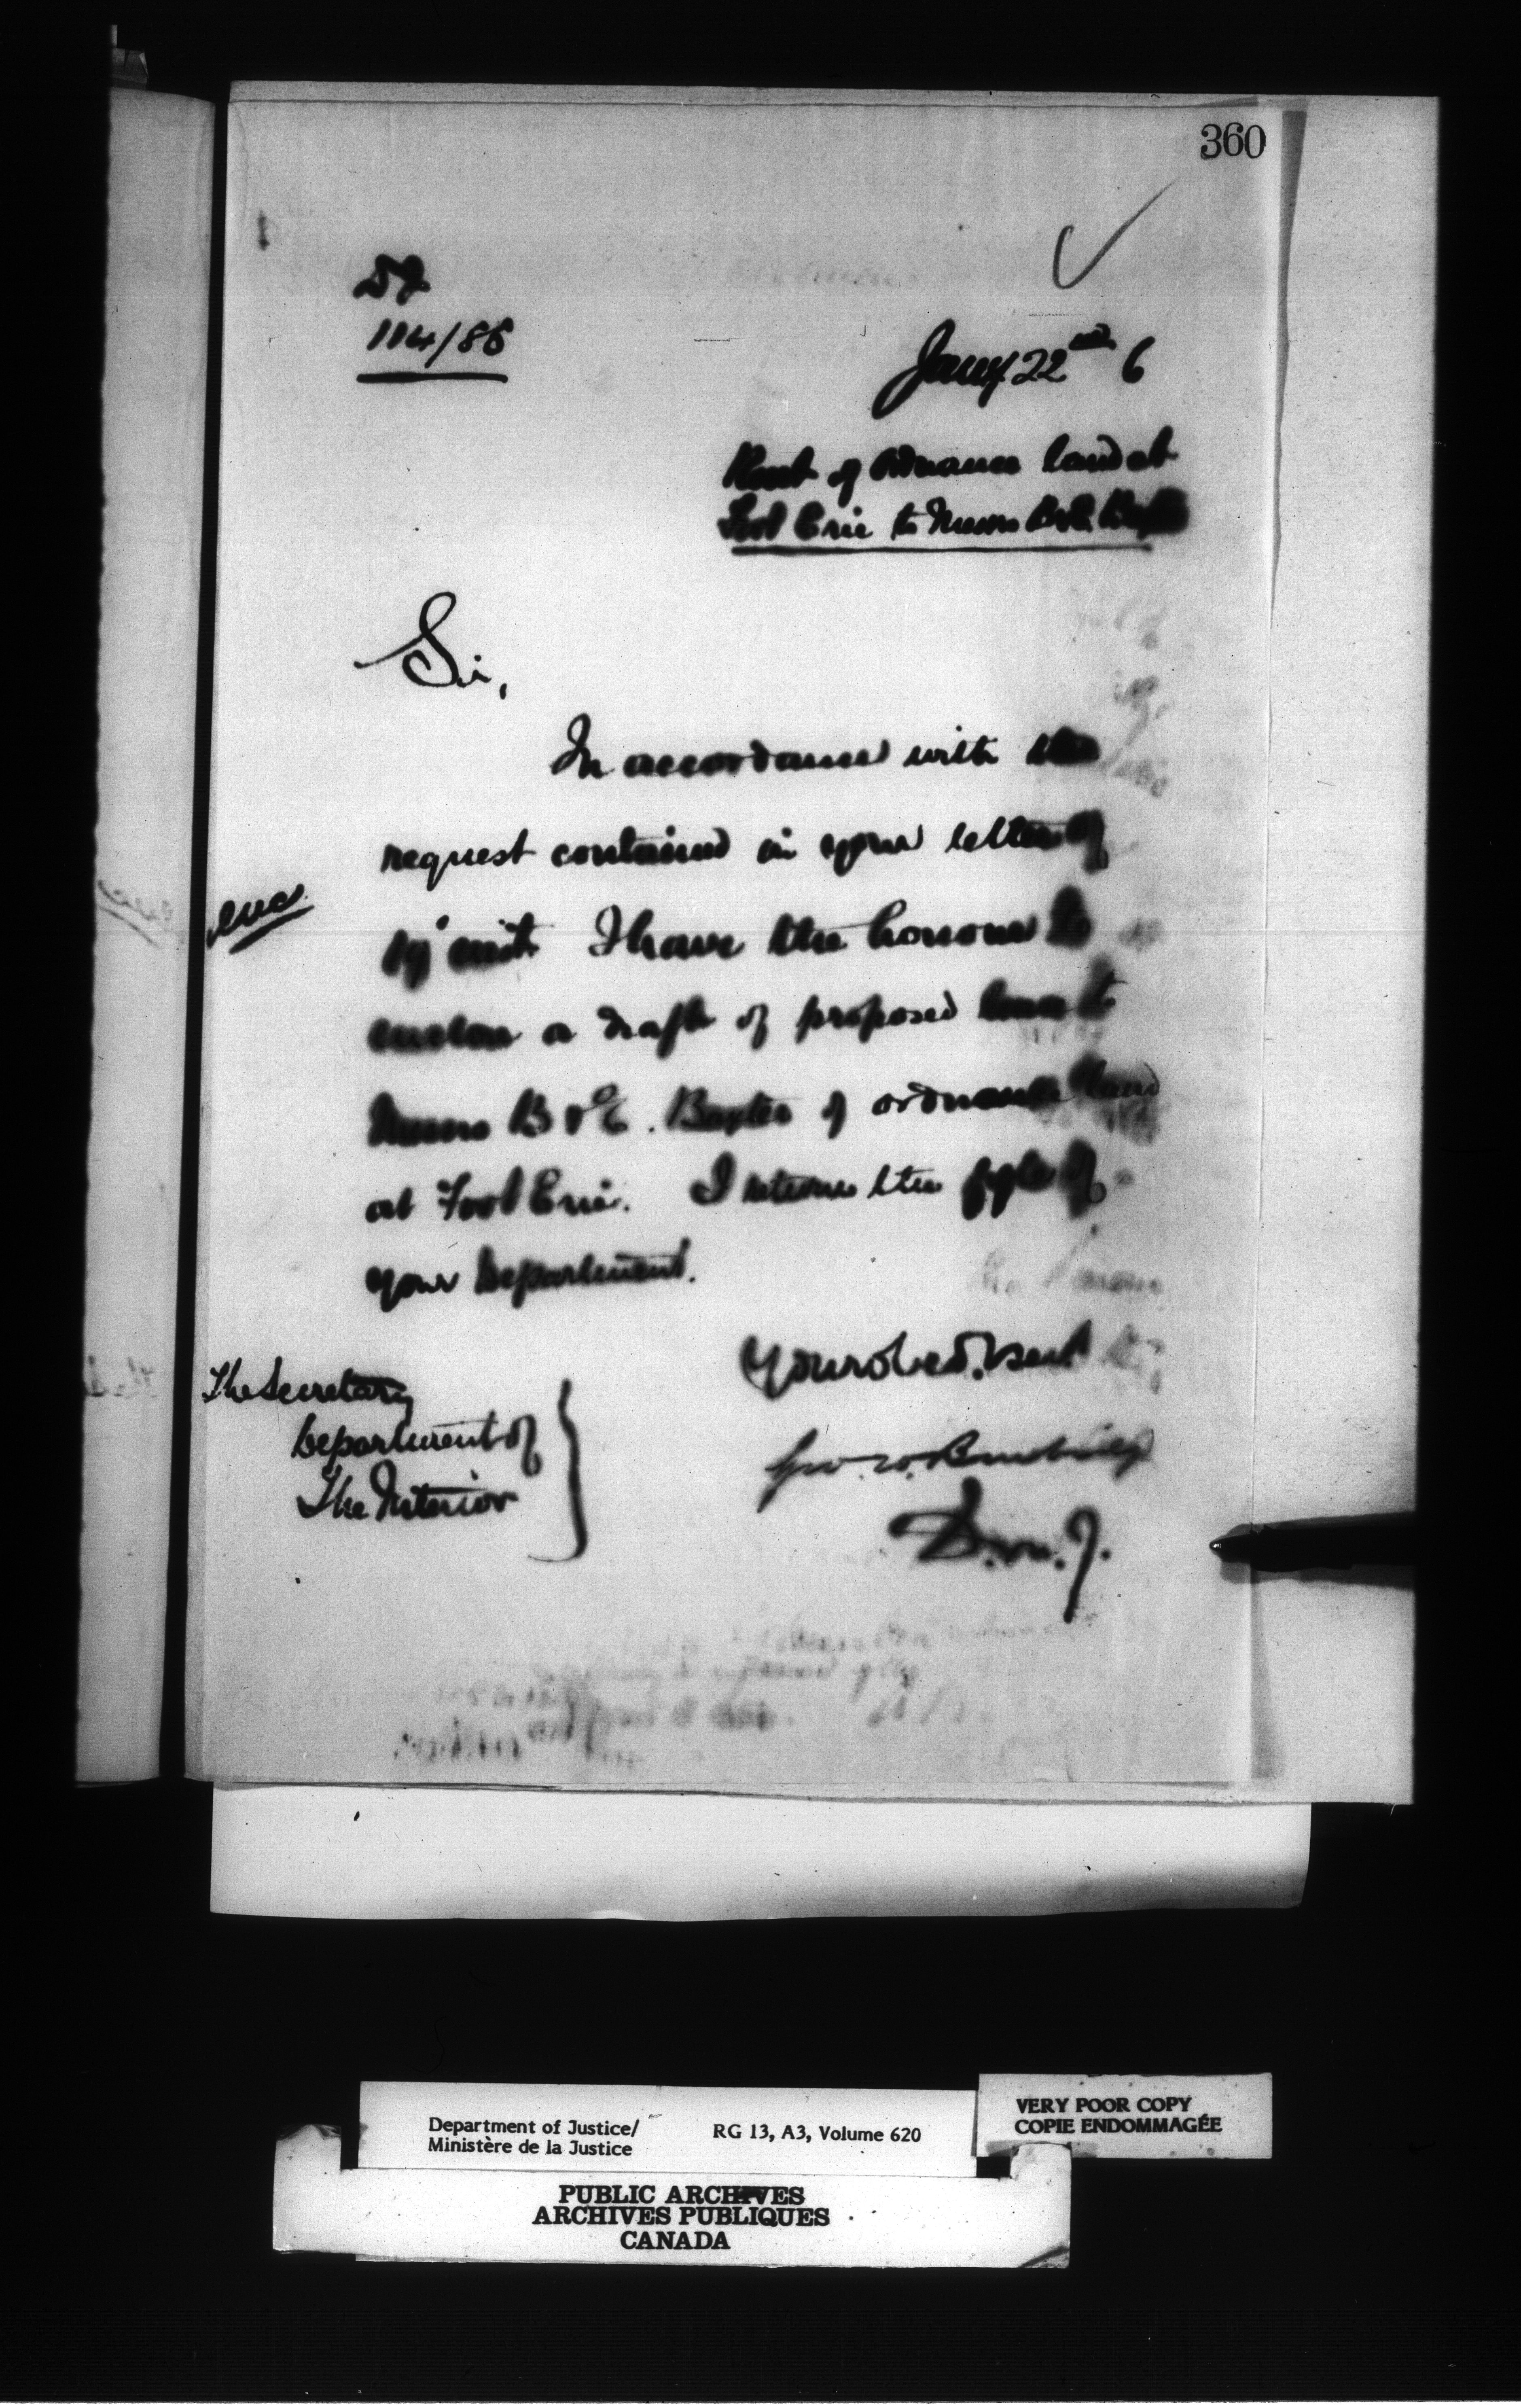 360
DJ
114/86
Jany 22nd 6
Rent of Ordnance land at
Fort Erie to Messrs B & E. Baxter
Sir,
In accordance with the
request contained in your letter of
19th inst. I have the honour to
enclose a draft of proposed lease to
Messrs B & E. Baxter of ordnance land
at Fort Erie. I return the fyle of
your Department.
enc
Your obed. Servt
Geo. W. Burbidge
D.m.J.
The Secretary
Department of
The Interior
Department of Justice/
Ministère de la Justice
RG 13, A3, Volume 620
VERY POOR COPY
COPIE ENDOMMAGÉE
PUBLIC ARCHIVES
ARCHIVES PUBLIQUES
CANADA